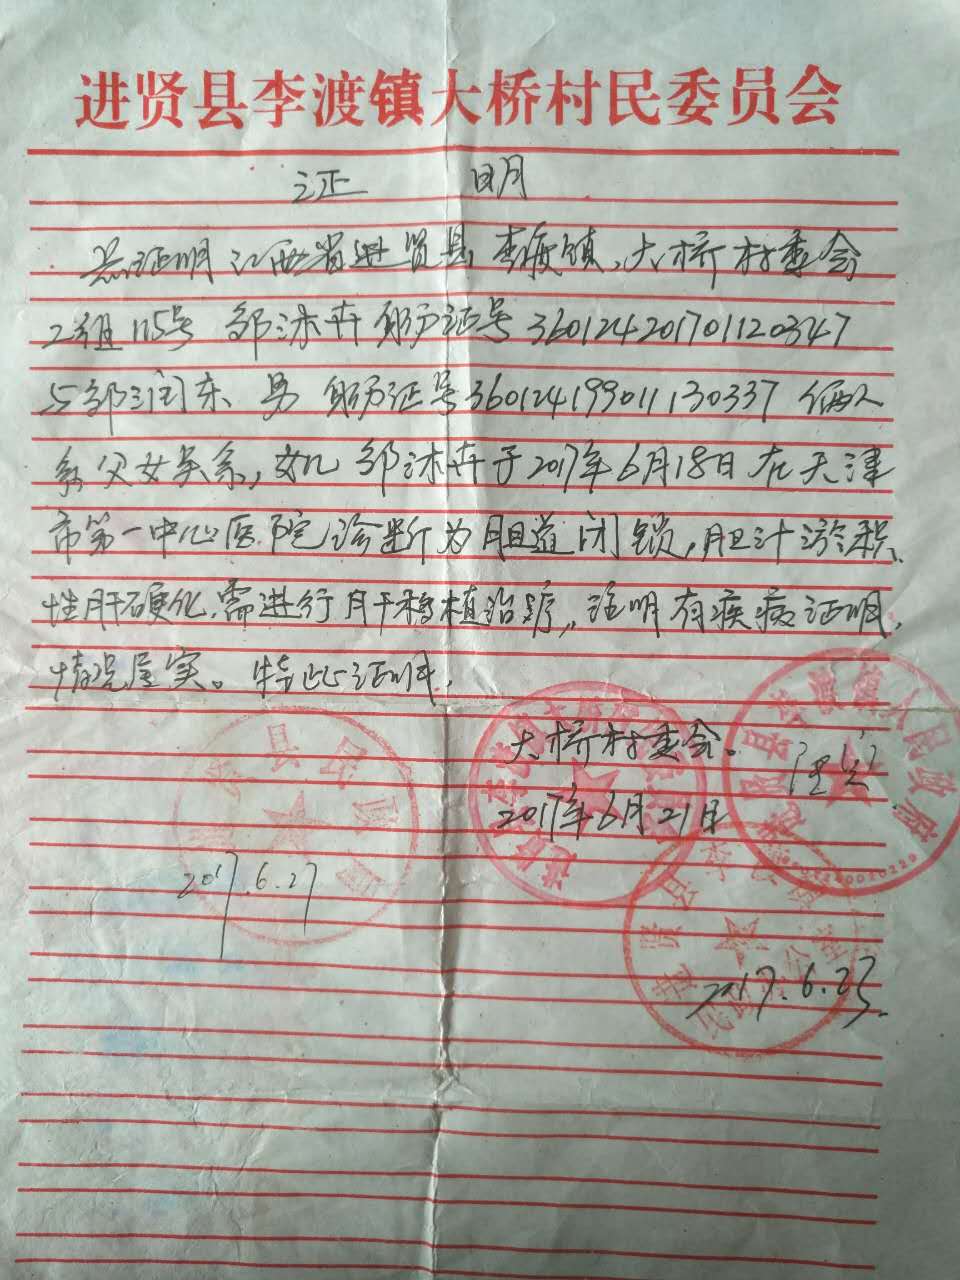 进贤县李渡镇大桥村民委员会
证 明
兹证明江西省进贤县李渡镇,大桥村委会
2组115号 邹沐卉 身份证号360124201701120347
与邹润东 男 身份证号360124199011130337 俩人
系父女关系,女儿 邹沐卉于2017年6月18日在天津
市第一中心医院诊断为胆道闭锁,胆汁淤积
性肝硬化,需进行肝移植治疗,证明有疾病证明,
情况属实。特此证明,
大桥村委会。
2017年6月21日
情况属实
2017.6.27
2017.6.23